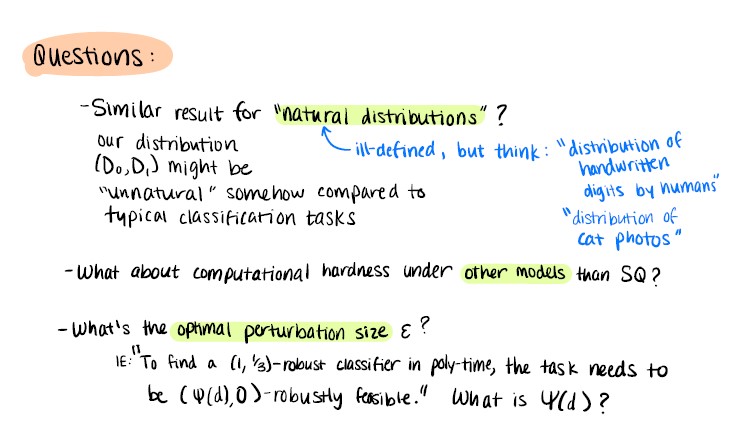 Questions:
- Similar result for "natural distributions" ?
our distribution
(D₀,D₁) might be
"unnatural" somehow compared to
typical classification tasks
ill-defined, but think: "distribution of
handwritten
digits by humans"
"distribution of
cat photos"
- What about computational hardness under other models than SQ?
- What's the optimal perturbation size ε ?
IE: "To find a (1, 1/3)-robust classifier in poly-time, the task needs to
be (Ψ(d),0)-robustly feasible." What is Ψ(d)?